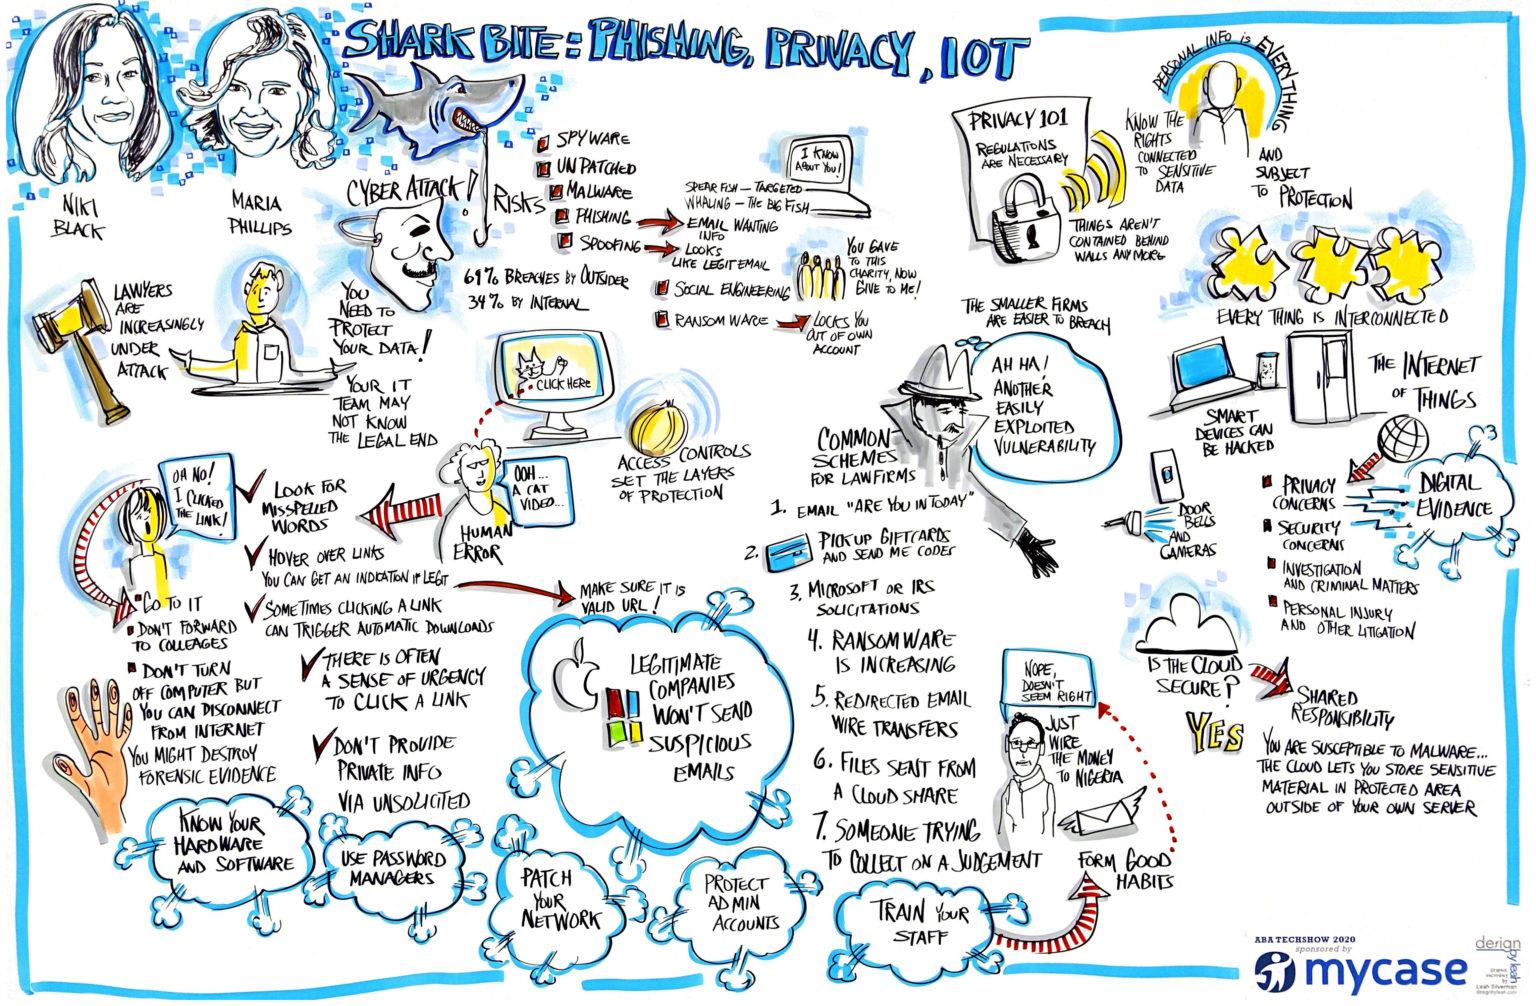 SHARK BITE: PHISHING, PRIVACY, IOT
NIKI
BLACK
MARIA
PHILLIPS
CYBER ATTACK!
RISKS
SPYWARE
UNPATCHED
MALWARE
PHISHING
SPOOFING
SPEAR FISH — TARGETED
WHALING — THE BIG FISH
EMAIL WANTING
INFO
LOOKS
LIKE LEGIT EMAIL
I KNOW
ABOUT YOU!
SOCIAL ENGINEERING
YOU GAVE
TO THIS
CHARITY, NOW
GIVE TO ME!
RANSOMWARE
LOCKS YOU
OUT OF OWN
ACCOUNT
69% BREACHES BY OUTSIDER
34% BY INTERNAL
LAWYERS
ARE
INCREASINGLY
UNDER
ATTACK
YOU
NEED TO
PROTECT
YOUR DATA!
YOUR IT
TEAM MAY
NOT KNOW
THE LEGAL END
CLICK HERE
OOH...
A CAT
VIDEO...
HUMAN
ERROR
ACCESS CONTROLS
SET THE LAYERS
OF PROTECTION
OH NO!
I CLICKED
THE LINK!
LOOK FOR
MISSPELLED
WORDS
HOVER OVER LINKS
YOU CAN GET AN INDICATION IF LEGIT
MAKE SURE IT IS
VALID URL!
SOMETIMES CLICKING A LINK
CAN TRIGGER AUTOMATIC DOWNLOADS
THERE IS OFTEN
A SENSE OF URGENCY
TO CLICK A LINK
DON'T PROVIDE
PRIVATE INFO
VIA UNSOLICITED
GO TO IT
DON'T FORWARD
TO COLLEAGES
DON'T TURN
OFF COMPUTER BUT
YOU CAN DISCONNECT
FROM INTERNET
YOU MIGHT DESTROY
FORENSIC EVIDENCE
LEGITIMATE
COMPANIES
WON'T SEND
SUSPICIOUS
EMAILS
KNOW YOUR
HARDWARE
AND SOFTWARE
USE PASSWORD
MANAGERS
PATCH
YOUR
NETWORK
PROTECT
ADMIN
ACCOUNTS
TRAIN YOUR
STAFF
FORM GOOD
HABITS
THE SMALLER FIRMS
ARE EASIER TO BREACH
AH HA!
ANOTHER
EASILY
EXPLOITED
VULNERABILITY
COMMON
SCHEMES
FOR LAWFIRMS
1. EMAIL "ARE YOU IN TODAY"
2. PICK UP GIFTCARDS
AND SEND ME CODES
3. MICROSOFT OR IRS
SOLICITATIONS
4. RANSOMWARE
IS INCREASING
5. REDIRECTED EMAIL
WIRE TRANSFERS
6. FILES SENT FROM
A CLOUD SHARE
7. SOMEONE TRYING
TO COLLECT ON A JUDGEMENT
NOPE,
DOESN'T
SEEM RIGHT
JUST
WIRE
THE MONEY
TO NIGERIA
PRIVACY 101
REGULATIONS
ARE NECESSARY
THINGS AREN'T
CONTAINED BEHIND
WALLS ANY MORE
PERSONAL INFO is EVERYTHING
KNOW THE
RIGHTS
CONNECTED
TO SENSITIVE
DATA
AND
SUBJECT
TO PROTECTION
EVERY THING IS INTERCONNECTED
THE INTERNET
OF THINGS
SMART
DEVICES CAN
BE HACKED
DOOR
BELLS
AND
CAMERAS
PRIVACY
CONCERNS
SECURITY
CONCERNS
INVESTIGATION
AND CRIMINAL MATTERS
PERSONAL INJURY
AND OTHER LITIGATION
DIGITAL
EVIDENCE
IS THE CLOUD
SECURE?
YES
SHARED
RESPONSIBILITY
YOU ARE SUSCEPTIBLE TO MALWARE...
THE CLOUD LETS YOU STORE SENSITIVE
MATERIAL IN PROTECTED AREA
OUTSIDE OF YOUR OWN SERVER
ABA TECHSHOW 2020
sponsored by
mycase
design
by leah
Leah Silverman